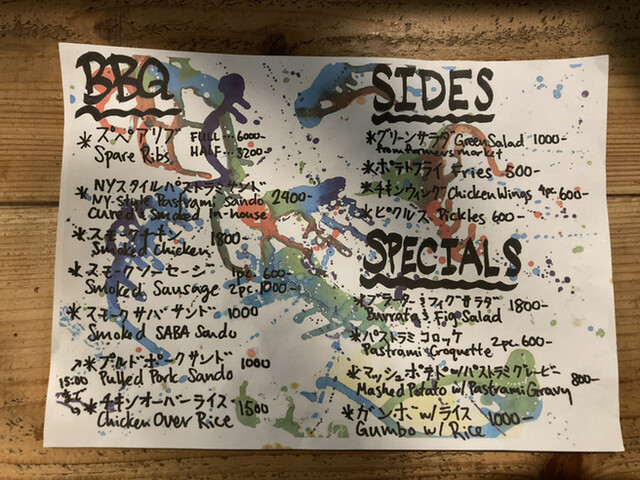 BBQ
*スペアリブ FULL...6000-
Spare Ribs HALF...3200-
*NYスタイルパストラミサンド
NY-style Pastrami Sando 2400-
Cured & Smoked In-house
*スモークチキン 1800-
Smoked Chicken
*スモークソーセージ 1pc 600-
Smoked Sausage 2pc.1000-
*スモークサバサンド 1000
Smoked SABA Sando
*プルドポークサンド 1000
Pulled Pork Sando
15:00
*チキンオーバーライス 1500
Chicken Over Rice
SIDES
*グリーンサラダ Green Salad 1000-
from farmers market
*ポテトフライ Fries 500-
*チキンウィング Chicken Wings 4pc 600-
*ピクルス Pickles 600-
SPECIALS
*ブラータ&フィグサラダ 1800-
Burrata & Fig Salad
*パストラミコロッケ 2pc 600-
Pastrami Croquette
*マッシュポテトw/パストラミグレービー 800-
Mashed Potato w/ Pastrami Gravy
*ガンボw/ライス 1000-
Gumbo w/ Rice